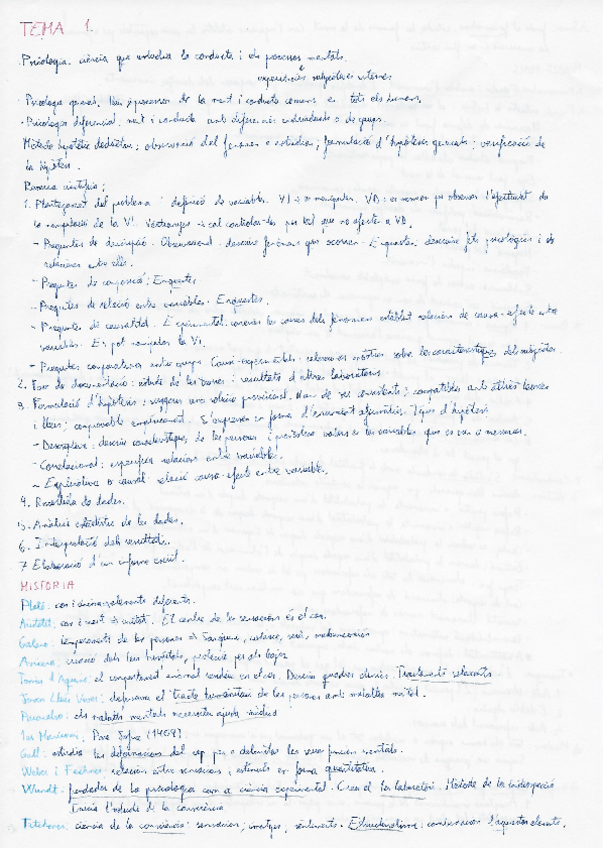 TEMA 1.
Psicologia: ciència que estudia la conducta i els processos mentals.
experiències subjectives internes
- Psicologia general: lleis i processos de la ment i conducta comuns en tots els humans.
- Psicologia diferencial: ment i conducta amb diferències individuals o de grups.
Mètode hipotètic deductiu: observació del fenomen a estudiar; formulació d'hipòtesis generals; verificació de
la hipòtesi.
Recerca científica:
1. Plantejament del problema: definició de variables. VI: es manipulen. VD: es mesuren per observar l'efectivitat de
la manipulació de la VI. V. estranyes: cal controlar-les per tal que no afecti a VD.
- Preguntes de descripció. Observacional: descriu fenòmens que ocorren. Enquesta: descriu fets psicològics i les
relacions entre ells.
- Preguntes de composició: Enquestes
- Preguntes de relació entre variables: Enquestes.
- Preguntes de causalitat. Experimental: coneix les causes dels fenòmens establint relacions de causa-efecte entre
variables. Es pot manipular la VI.
- Preguntes comparatives entre grups. Quasi-experimentals: seleccionen mostres sobre les característiques dels subjectes.
2. Fase de documentació: estudi de les teories i resultats d'altres laboratoris
3. Formulació d'hipòtesis: suggereix una solució provisional. Han de ser consistents; compatibles amb altres teories
i lleis; comprovable empíricament. S'expressen en forma d'enunciat afirmatiu. Tipus d'hipòtesis:
- Descriptiva: descriu característiques de les persones i pronostica valors en les variables que es van a mesurar.
- Correlacional: especifica relacions entre variables.
- Explicativa o causal: relació causa-efecte entre variables.
4. Recollida de dades.
5. Anàlisi estadístic de les dades.
6. Interpretació dels resultats.
7. Elaboració d'un informe escrit.
HISTÒRIA
Plató: cos i ànima: elements diferents.
Aristòtil: cos i ment és unitat. El centre de les sensacions és el cor.
Galeno: temperaments de les persones: Sanguini, colèric, melancòlic
Avicena: creació dels
Tomàs d'Aquino: el comportament anormal residia en el cos. Descriu quadres clínics. Tractaments relaxants
Joan Lluís Vives: defensava el tracte humanitari de les persones amb malaltia mental.
Paracelso: els malalts mentals necessiten ajuda mèdica
1er Manicomi: Pare Jofre (1409)
Gall: estudia les deformacions del cap per a delimitar les seues funcions mentals.
Weber i Fechner: relacions entre sensacions i estímuls en forma quantitativa.
Wundt: fundador de la psicologia com a ciència experimental. Crea el 1er laboratori. Mètode de la introspecció
Inicia l'estudi de la consciència
Titchener: ciència de la consciència: sensacions, imatges, sentiments. Estructuralisme: combinacions d'aquestos elements.